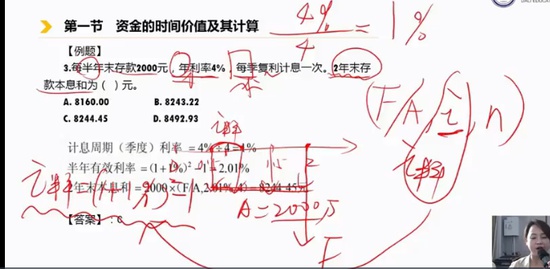 第一节 资金的时间价值及其计算
4%/4 = 1%
【例题】
3.每半年末存款2000元，年利率4%，每季复利计息一次。2年末存
款本息和为（ ）元。
A. 8160.00 B. 8243.22
C. 8244.45 D. 8492.93
(F/A, i, n)
计息周期（季度）利率 = 4%÷4 = 1%
半年有效利率 = (1+1%)² - 1 = 2.01%
2年末本息和 = 2000×(F/A,2.01%,4) = 8244.45元
A = 2000
F
【答案】：C